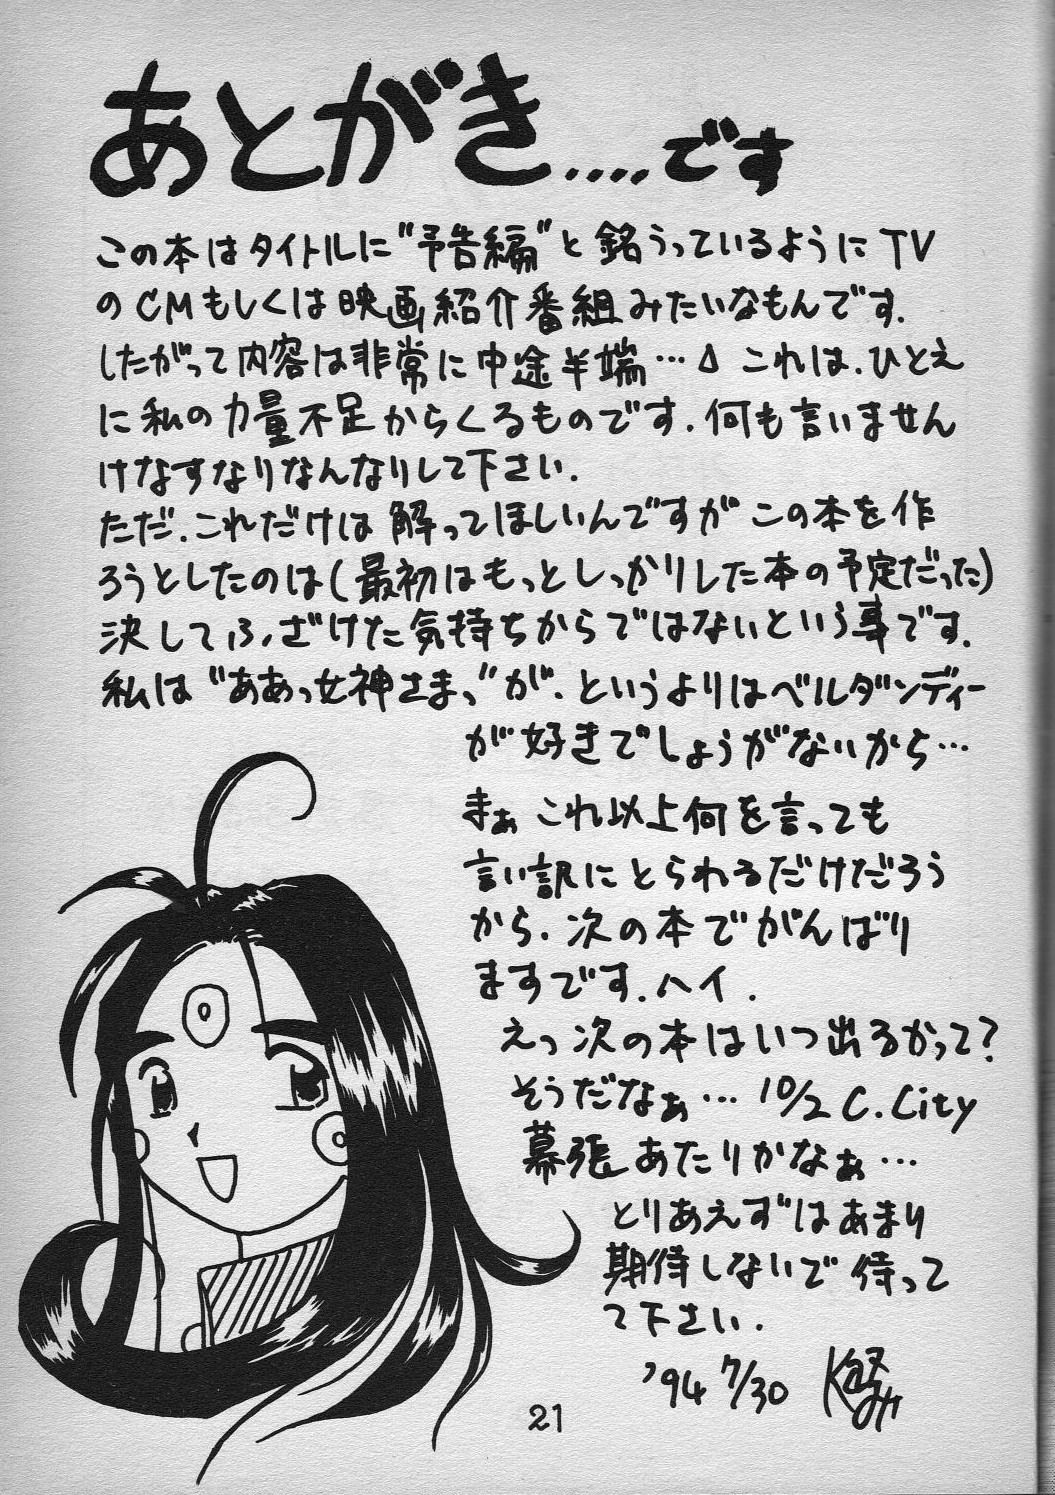 あとがき....です
この本はタイトルに"予告編"と銘うっているようにTV
のCMもしくは映画紹介番組みたいなもんです.
したがって内容は非常に中途半端…Δ これは.ひとえ
に私の力量不足からくるものです.何も言いません
けなすなりなんなりして下さい.
ただ.これだけは解ってほしいんですがこの本を作
ろうとしたのは(最初はもっとしっかりした本の予定だった)
決してふざけた気持ちからではないという事です.
私は"ああっ女神さまっ"が.というよりはベルダンディー
が好きでしょうがないから…
まぁ これ以上何を言っても
言い訳にとられるだけだろう
から.次の本でがんばり
ますです.ハイ.
えっ次の本はいつ出るかって?
そうだなぁ…10/2 C.City
幕張あたりかなぁ…
とりあえずはあまり
期待しないで待って
て下さい.
'94 7/30
21